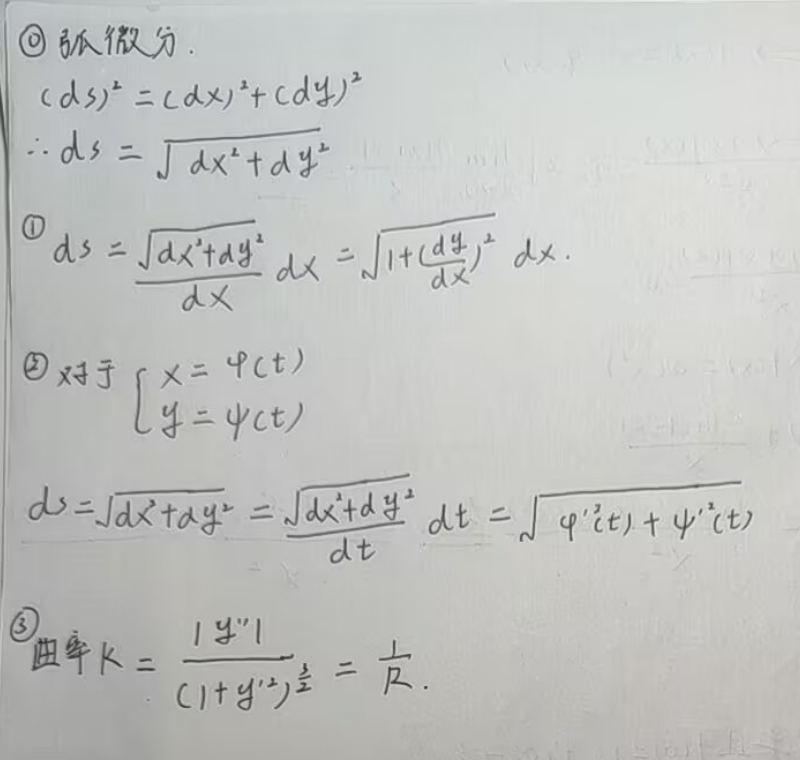 ⓪ 弧微分.
(ds)² = (dx)² + (dy)²
∴ ds = √(dx² + dy²)
① ds = √(dx²+dy²)/dx dx = √(1+(dy/dx)²) dx.
② 对于 { x = φ(t)
y = ψ(t)
ds = √(dx²+dy²) = √(dx²+dy²)/dt dt = √(φ'²(t) + ψ'²(t))
③ 曲率 K = |y''|/(1+y'²)^(3/2) = 1/R.